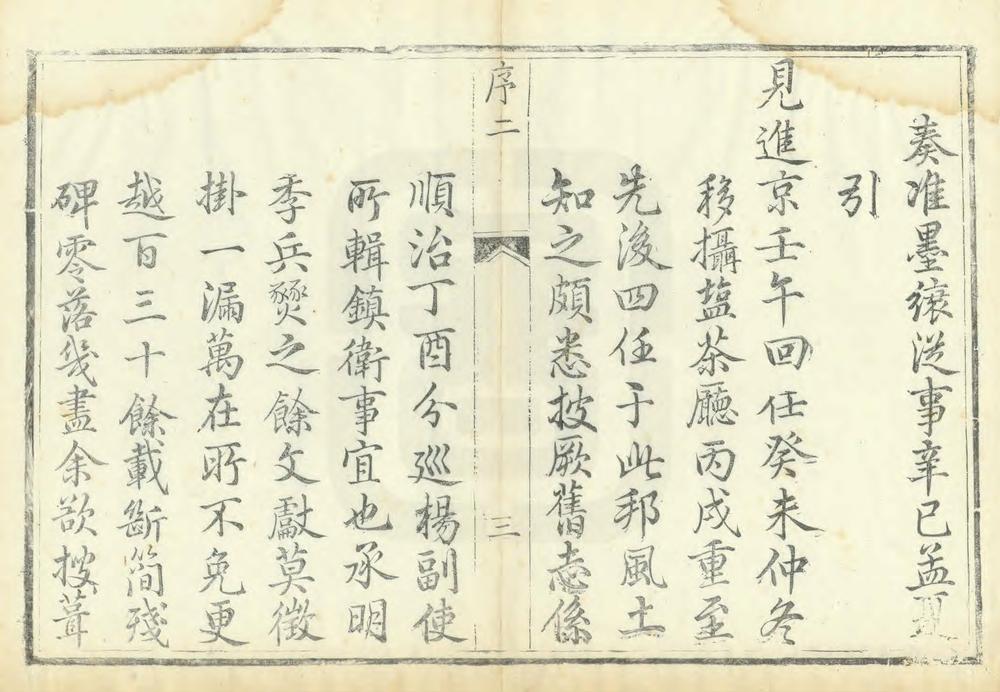 奏准墨縗従事辛巳孟夏
引
見進京壬午回任癸未仲冬
移攝塩茶廳丙戌重至
先後四任于此邦風土
知之頗悉披厥舊志係
序二
三
順治丁酉分巡楊副使
所輯鎮衛事宜也承明
季兵燹之餘文獻莫徵
掛一漏萬在所不免更
越百三十餘載斷簡殘
碑零落幾盡余欲搜葺